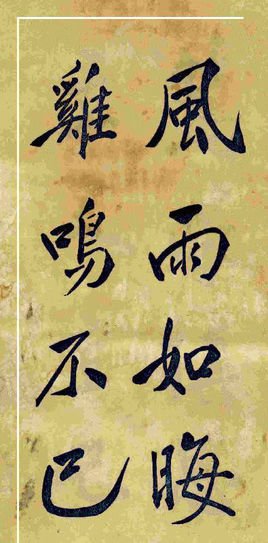 風雨如晦
雞鳴不已